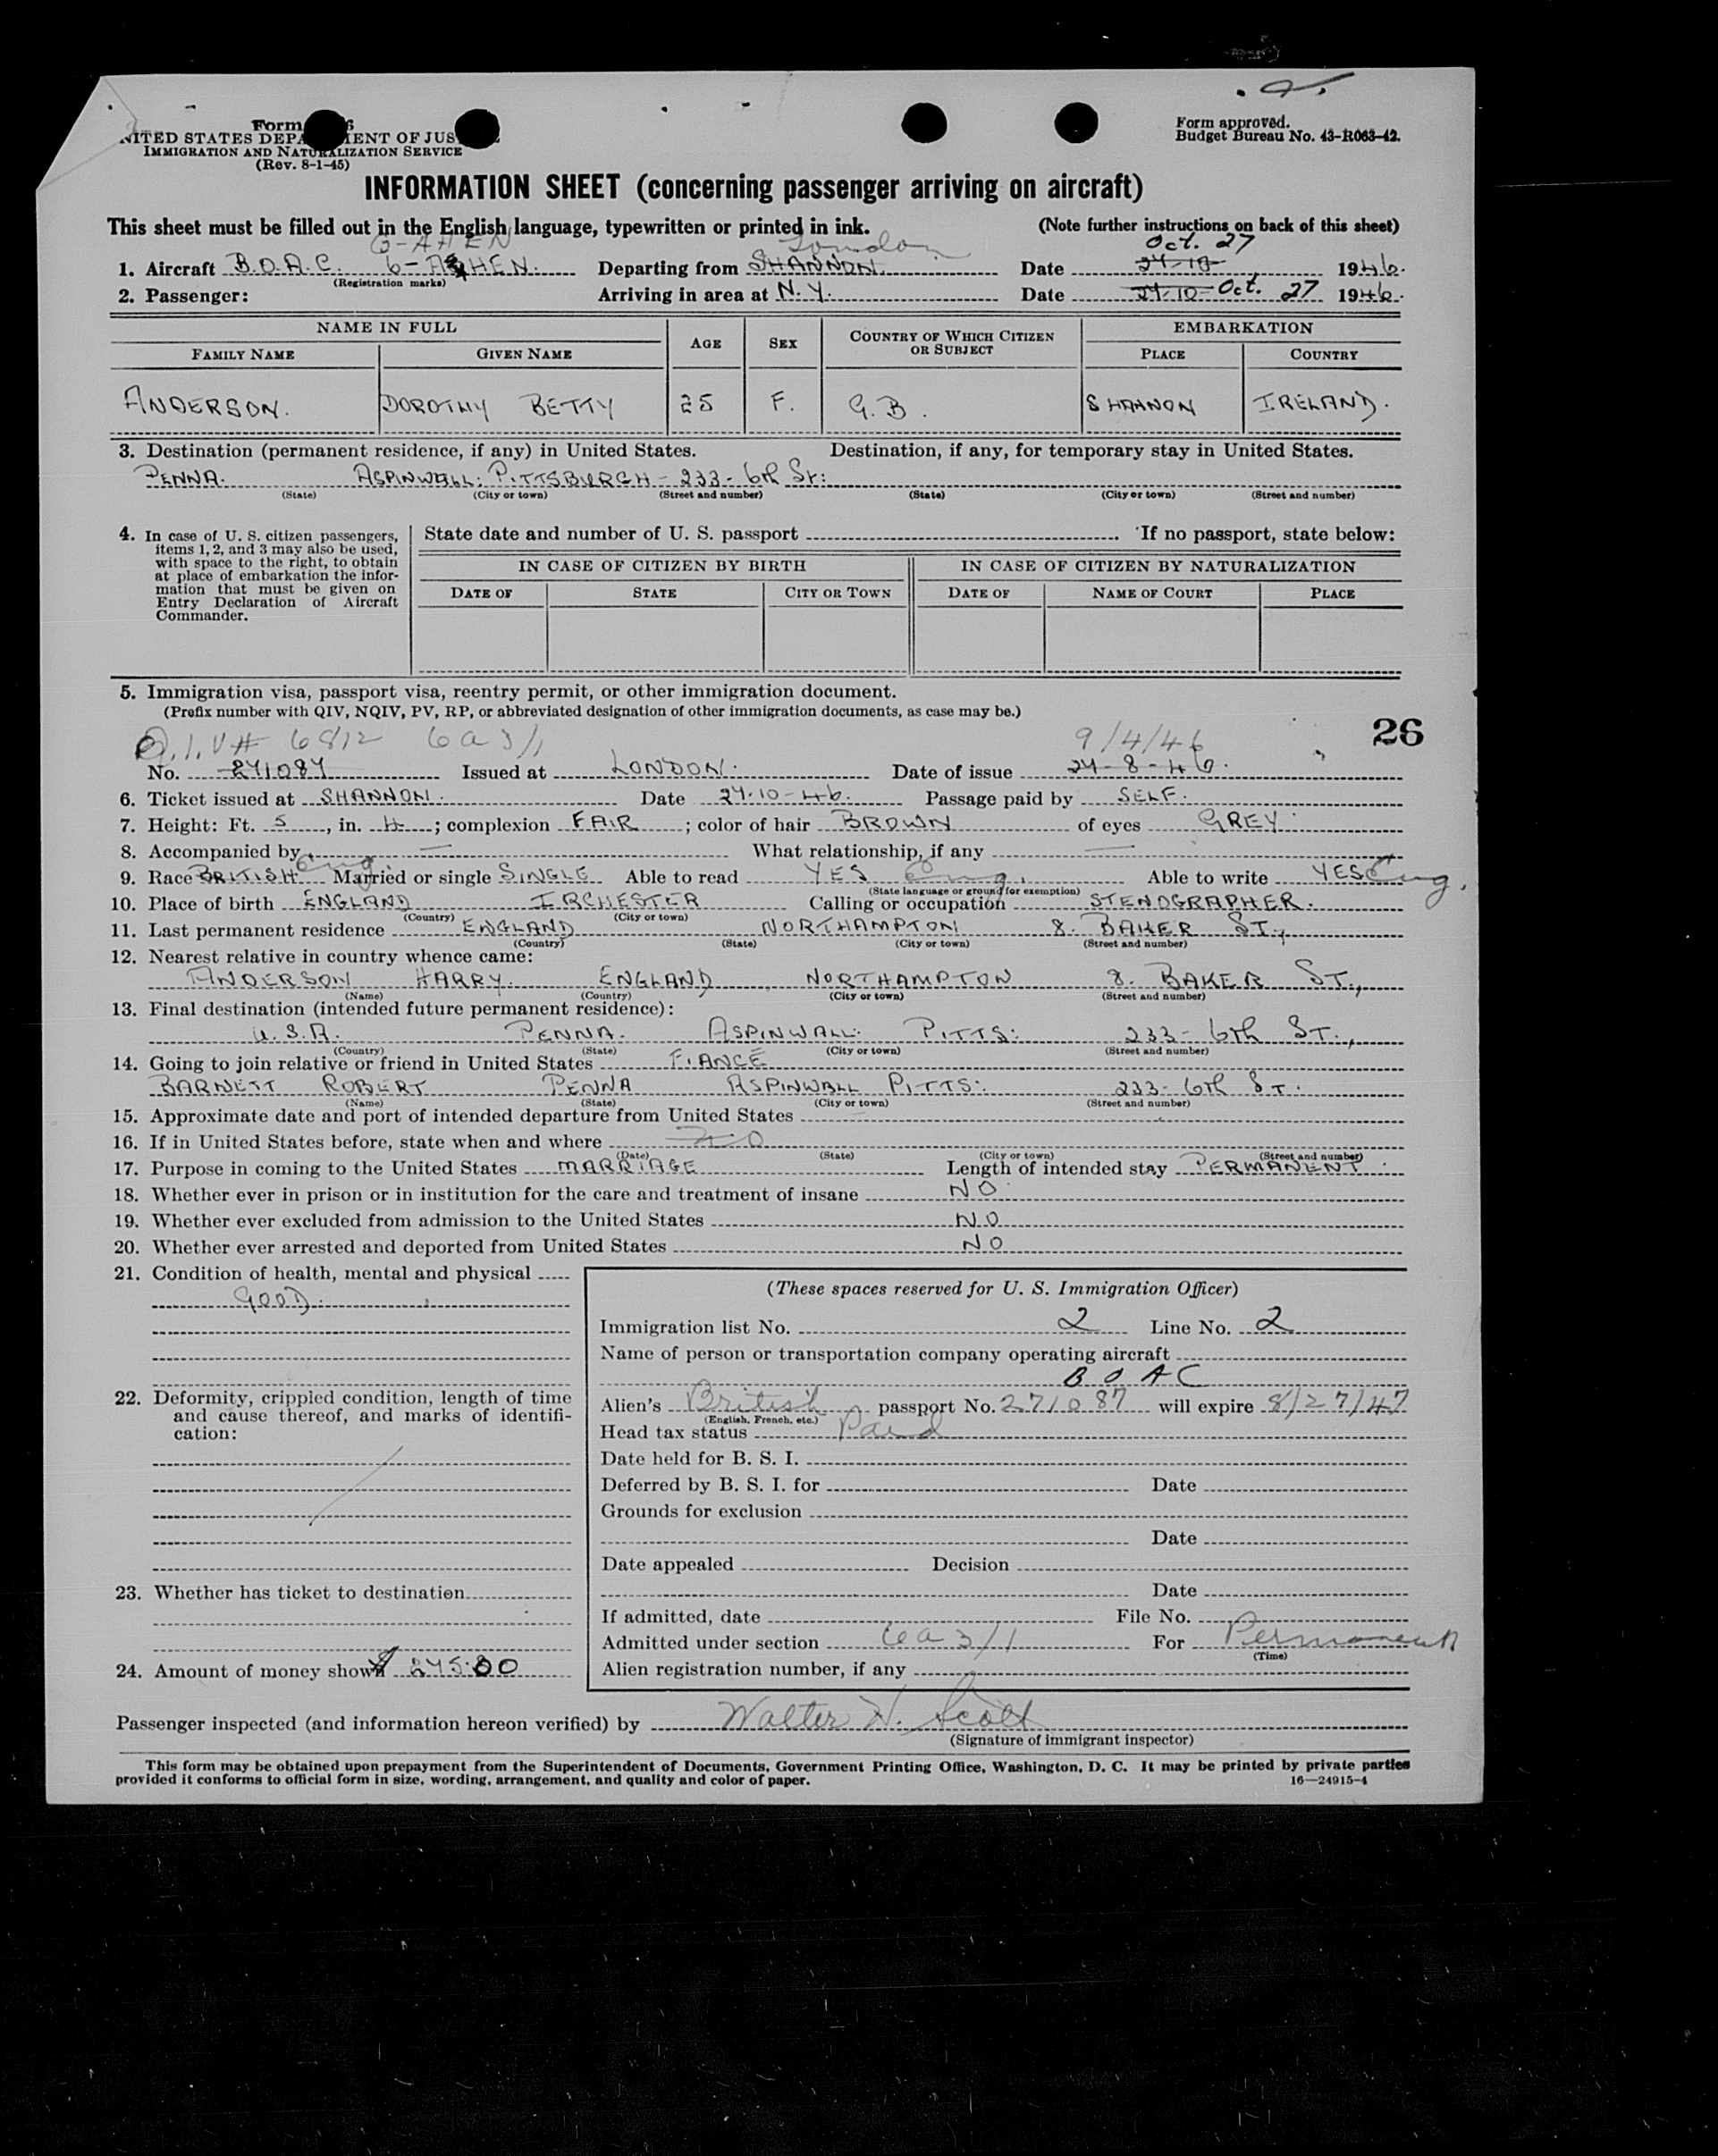 Form 6
NITED STATES DEPA MENT OF JUS
IMMIGRATION AND NATURALIZATION SERVICE
(Rev. 8-1-45)
Form approved.
Budget Bureau No. 43-R063-42.
INFORMATION SHEET (concerning passenger arriving on aircraft)
This sheet must be filled out in the English language, typewritten or printed in ink. (Note further instructions on back of this sheet)
G-AHEN London Oct. 27
1. Aircraft B.O.A.C. G-AHEN. Departing from SHANNON Date 24-10- 1946.
(Registration marks)
2. Passenger: Arriving in area at N.Y. Date 24-10- Oct. 27 1946.
NAME IN FULL AGE SEX COUNTRY OF WHICH CITIZEN OR SUBJECT EMBARKATION
FAMILY NAME GIVEN NAME PLACE COUNTRY
ANDERSON. DOROTHY BETTY 25 F. G.B. SHANNON IRELAND.
3. Destination (permanent residence, if any) in United States. Destination, if any, for temporary stay in United States.
PENNA. ASPINWALL: PITTSBURGH - 233 - 6th St:
(State) (City or town) (Street and number) (State) (City or town) (Street and number)
4. In case of U. S. citizen passengers, items 1, 2, and 3 may also be used, with space to the right, to obtain at place of embarkation the information that must be given on Entry Declaration of Aircraft Commander.
State date and number of U. S. passport . If no passport, state below:
IN CASE OF CITIZEN BY BIRTH IN CASE OF CITIZEN BY NATURALIZATION
DATE OF STATE CITY OR TOWN DATE OF NAME OF COURT PLACE
5. Immigration visa, passport visa, reentry permit, or other immigration document.
(Prefix number with QIV, NQIV, PV, RP, or abbreviated designation of other immigration documents, as case may be.)
26
Q.I.V# 6812 6a3/1 9/4/46
No. 271087 Issued at LONDON. Date of issue 27-8-46.
6. Ticket issued at SHANNON. Date 24.10-46. Passage paid by SELF.
7. Height: Ft. 5, in. 4; complexion FAIR; color of hair BROWN of eyes GREY
8. Accompanied by — What relationship, if any —
9. Race BRITISH Eng. Married or single SINGLE Able to read YES Eng. Able to write YES Eng.
(State language or ground for exemption)
10. Place of birth ENGLAND IRCHESTER Calling or occupation STENOGRAPHER.
(Country) (City or town)
11. Last permanent residence ENGLAND NORTHAMPTON 8. BAKER ST.,
(Country) (State) (City or town) (Street and number)
12. Nearest relative in country whence came:
ANDERSON HARRY. ENGLAND, NORTHAMPTON 8. BAKER ST.,
(Name) (Country) (City or town) (Street and number)
13. Final destination (intended future permanent residence):
U.S.A. PENNA. ASPINWALL. PITTS: 233- 6th ST.,
(Country) (State) (City or town) (Street and number)
14. Going to join relative or friend in United States FIANCÉ
BARNETT ROBERT PENNA ASPINWALL PITTS: 233- 6th ST.
(Name) (State) (City or town) (Street and number)
15. Approximate date and port of intended departure from United States
16. If in United States before, state when and where NO
(Date) (State) (City or town) (Street and number)
17. Purpose in coming to the United States MARRIAGE Length of intended stay PERMANENT.
18. Whether ever in prison or in institution for the care and treatment of insane NO
19. Whether ever excluded from admission to the United States NO
20. Whether ever arrested and deported from United States NO
21. Condition of health, mental and physical
GOOD.
22. Deformity, crippled condition, length of time and cause thereof, and marks of identification:
23. Whether has ticket to destination
24. Amount of money shown $ 245.80
(These spaces reserved for U. S. Immigration Officer)
Immigration list No. 2 Line No. 2
Name of person or transportation company operating aircraft
B O A C
Alien's British passport No. 271087 will expire 8/27/47
(English, French, etc.)
Head tax status Paid
Date held for B. S. I.
Deferred by B. S. I. for Date
Grounds for exclusion
Date
Date appealed Decision
Date
If admitted, date File No.
Admitted under section 6a3/1 For Permanent
(Time)
Alien registration number, if any
Passenger inspected (and information hereon verified) by Walter H. Scott
(Signature of immigrant inspector)
This form may be obtained upon prepayment from the Superintendent of Documents, Government Printing Office, Washington, D. C. It may be printed by private parties
provided it conforms to official form in size, wording, arrangement, and quality and color of paper. 16—24915-4